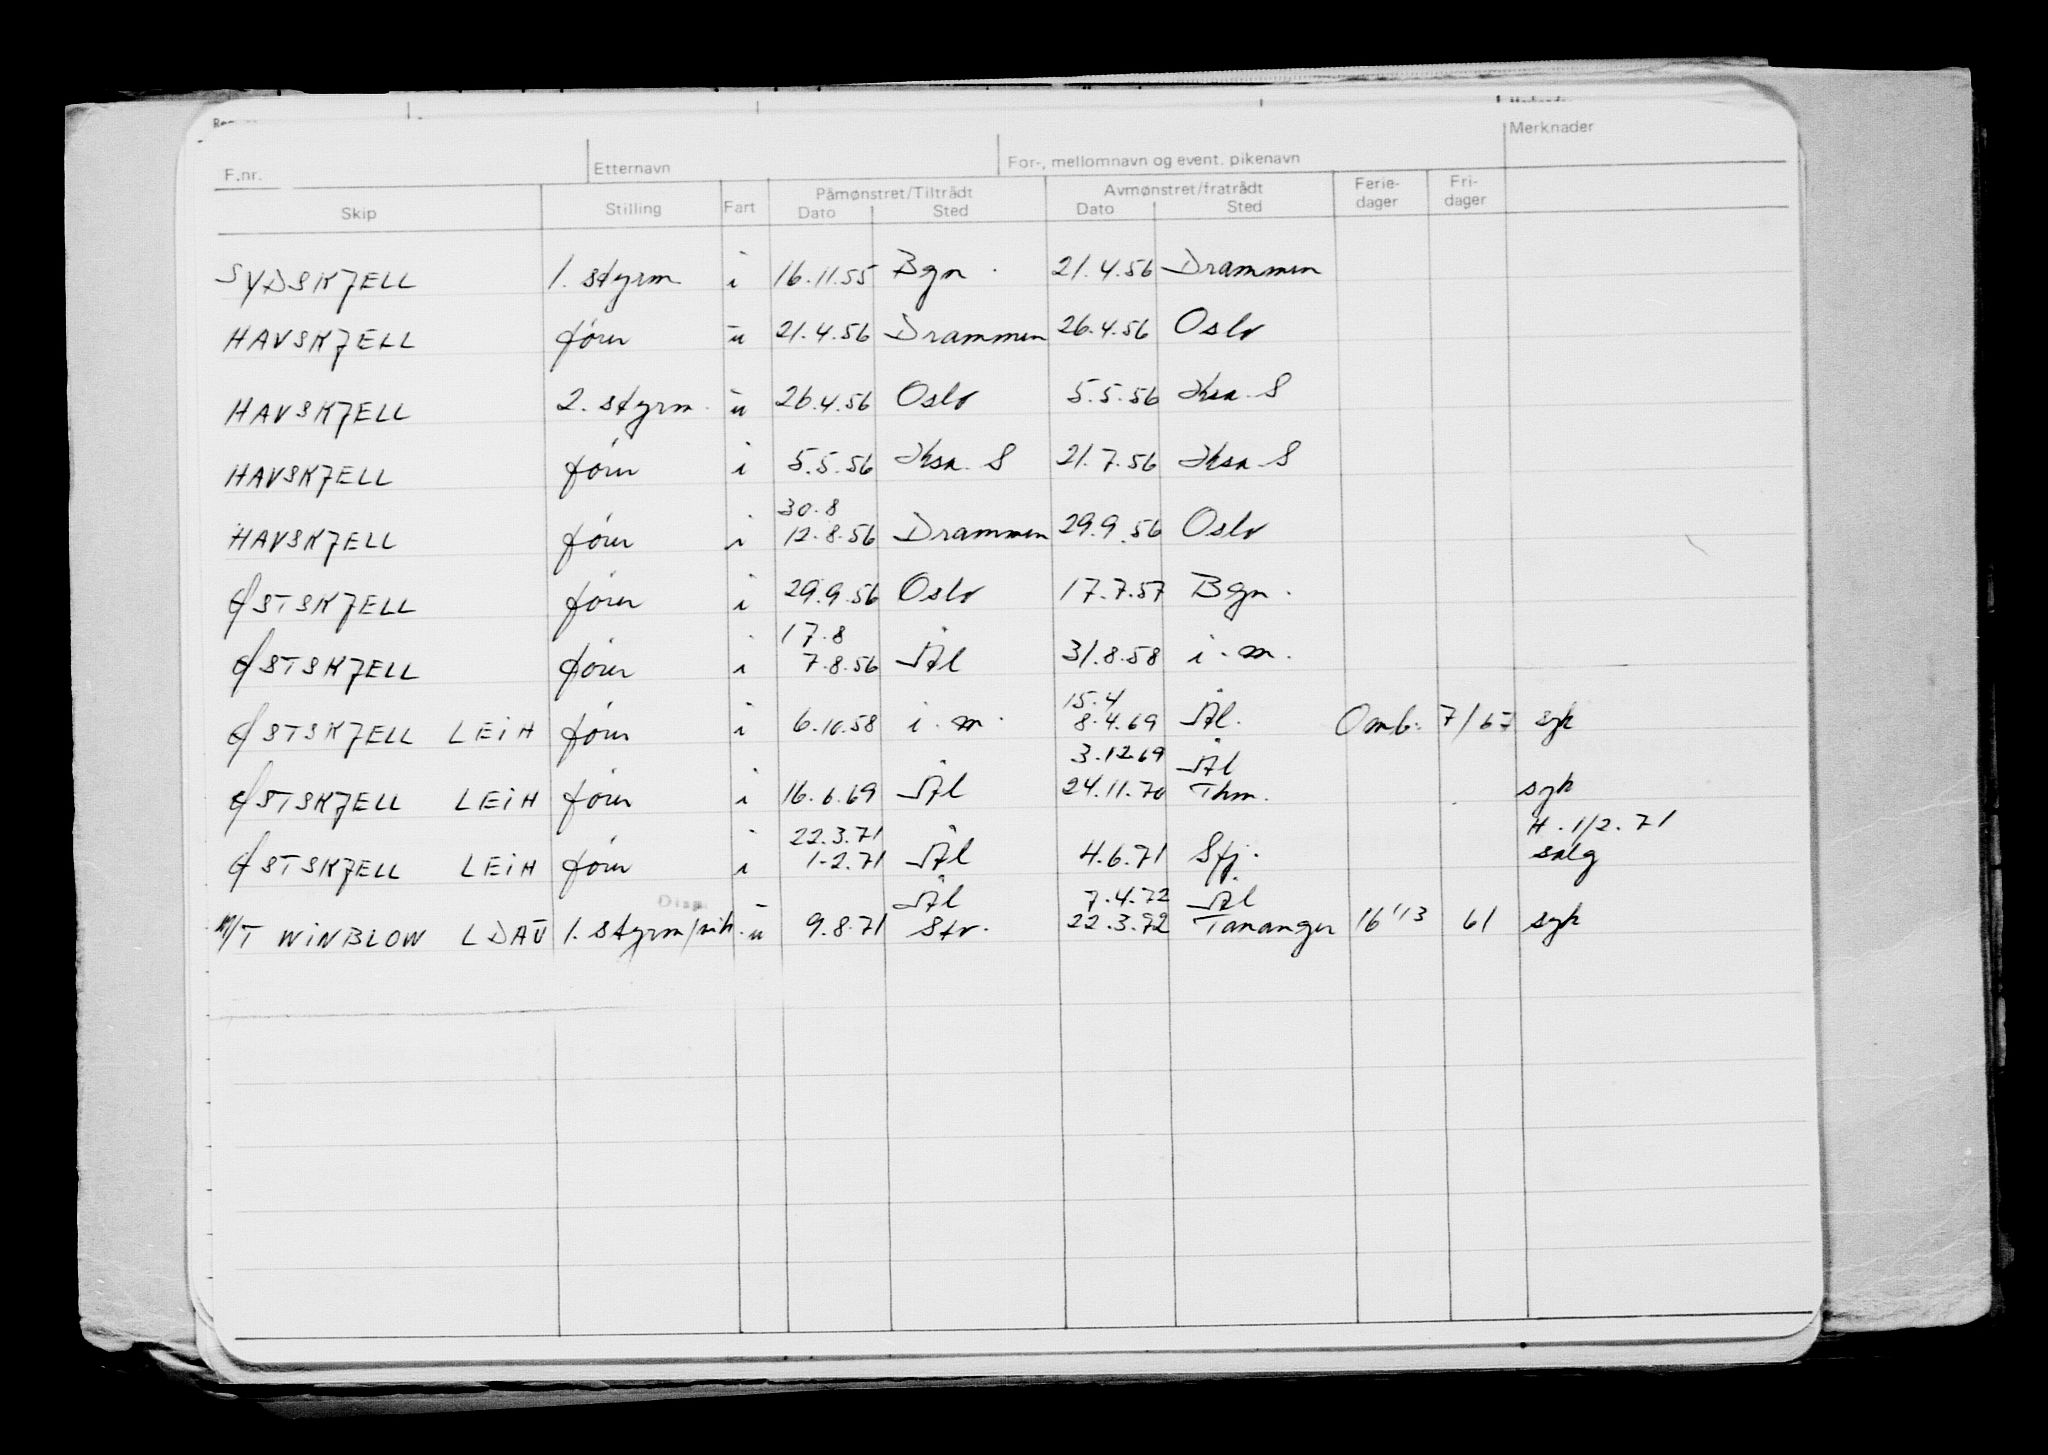 Merknader
F.nr. Etternavn For-, mellomnavn og event. pikenavn
Skip Stilling Fart Påmønstret/Tiltrådt Dato Sted Avmønstret/fratrådt Dato Sted Ferie-dager Fri-dager
SYDSKJELL 1. styrm i 16.11.55 Bgn. 21.4.56 Drammen
HAVSKJELL fører u 21.4.56 Drammen 26.4.56 Oslo
HAVSKJELL 2. styrm. u 26.4.56 Oslo 5.5.56 Krsn. S
HAVSKJELL fører i 5.5.56 Krsn. S 21.7.56 Krsn. S
30.8
HAVSKJELL fører i 12.8.56 Drammen 29.9.56 Oslo
ØSTSKJELL fører i 29.9.56 Oslo 17.7.57 Bgn.
17.8
ØSTSKJELL fører i 7.8.56 Ål 31.8.58 i.m.
15.4
ØSTSKJELL LEIH fører i 6.10.58 i.m. 8.4.69 Ål. Omb: 7/67 syk
3.12.69 Ål
ØSTSKJELL LEIH fører i 16.6.69 Ål 24.11.70 Thm. syk
22.3.71 H. 1/2.71
ØSTSKJELL LEIH fører i 1.2.71 Ål 4.6.71 Sfj. salg
Disp. Ål 7.4.72 Ål
M/T WINBLOW LDAU 1. styrm/ u 9.8.71 Stv. 22.3.72 Tananger 16 1/13 61 syk